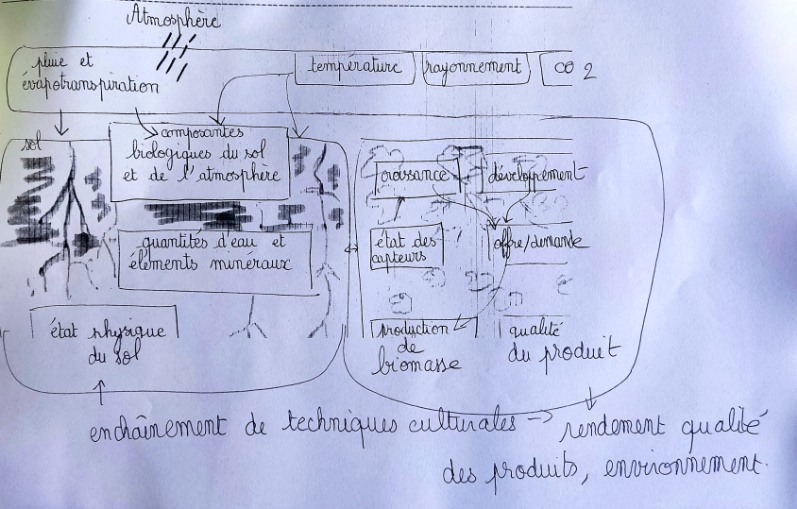 Atmosphère
pluie et
évapotranspiration
température
rayonnement
CO 2
sol
composantes
biologiques du sol
et de l'atmosphère
quantités d'eau et
éléments minéraux
état physique
du sol
croissance
développement
état des
capteurs
offre/demande
production
de
biomasse
qualité
du produit
enchaînement de techniques culturales -> rendement qualité
des produits, environnement.